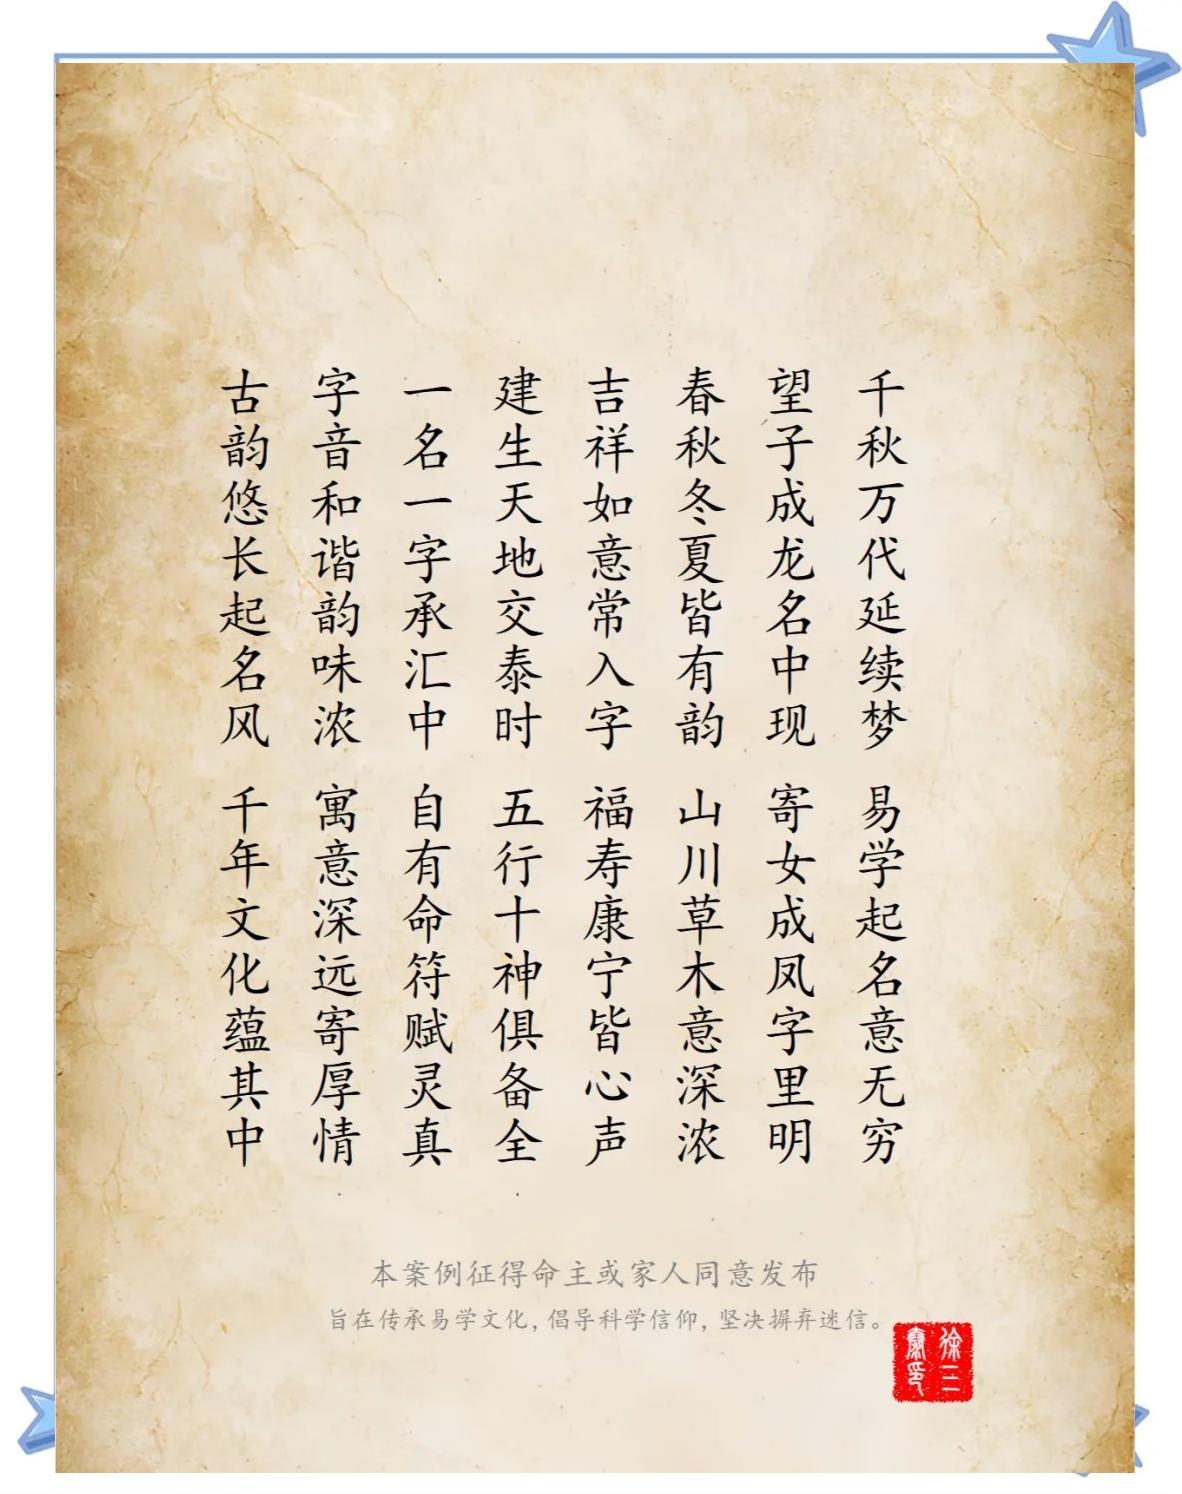 古韵悠长起名风 千年文化蕴其中
字音和谐韵味浓 寓意深远寄厚情
一名一字承汇中 自有命符赋灵真
建生天地交泰时 五行十神俱备全
吉祥如意常入字 福寿康宁皆心声
春秋冬夏皆有韵 山川草木意深浓
望子成龙名中现 寄女成凤字里明
千秋万代延续梦 易学起名意无穷
本案例征得命主或家人同意发布
旨在传承易学文化，倡导科学信仰，坚决摒弃迷信。
徐三